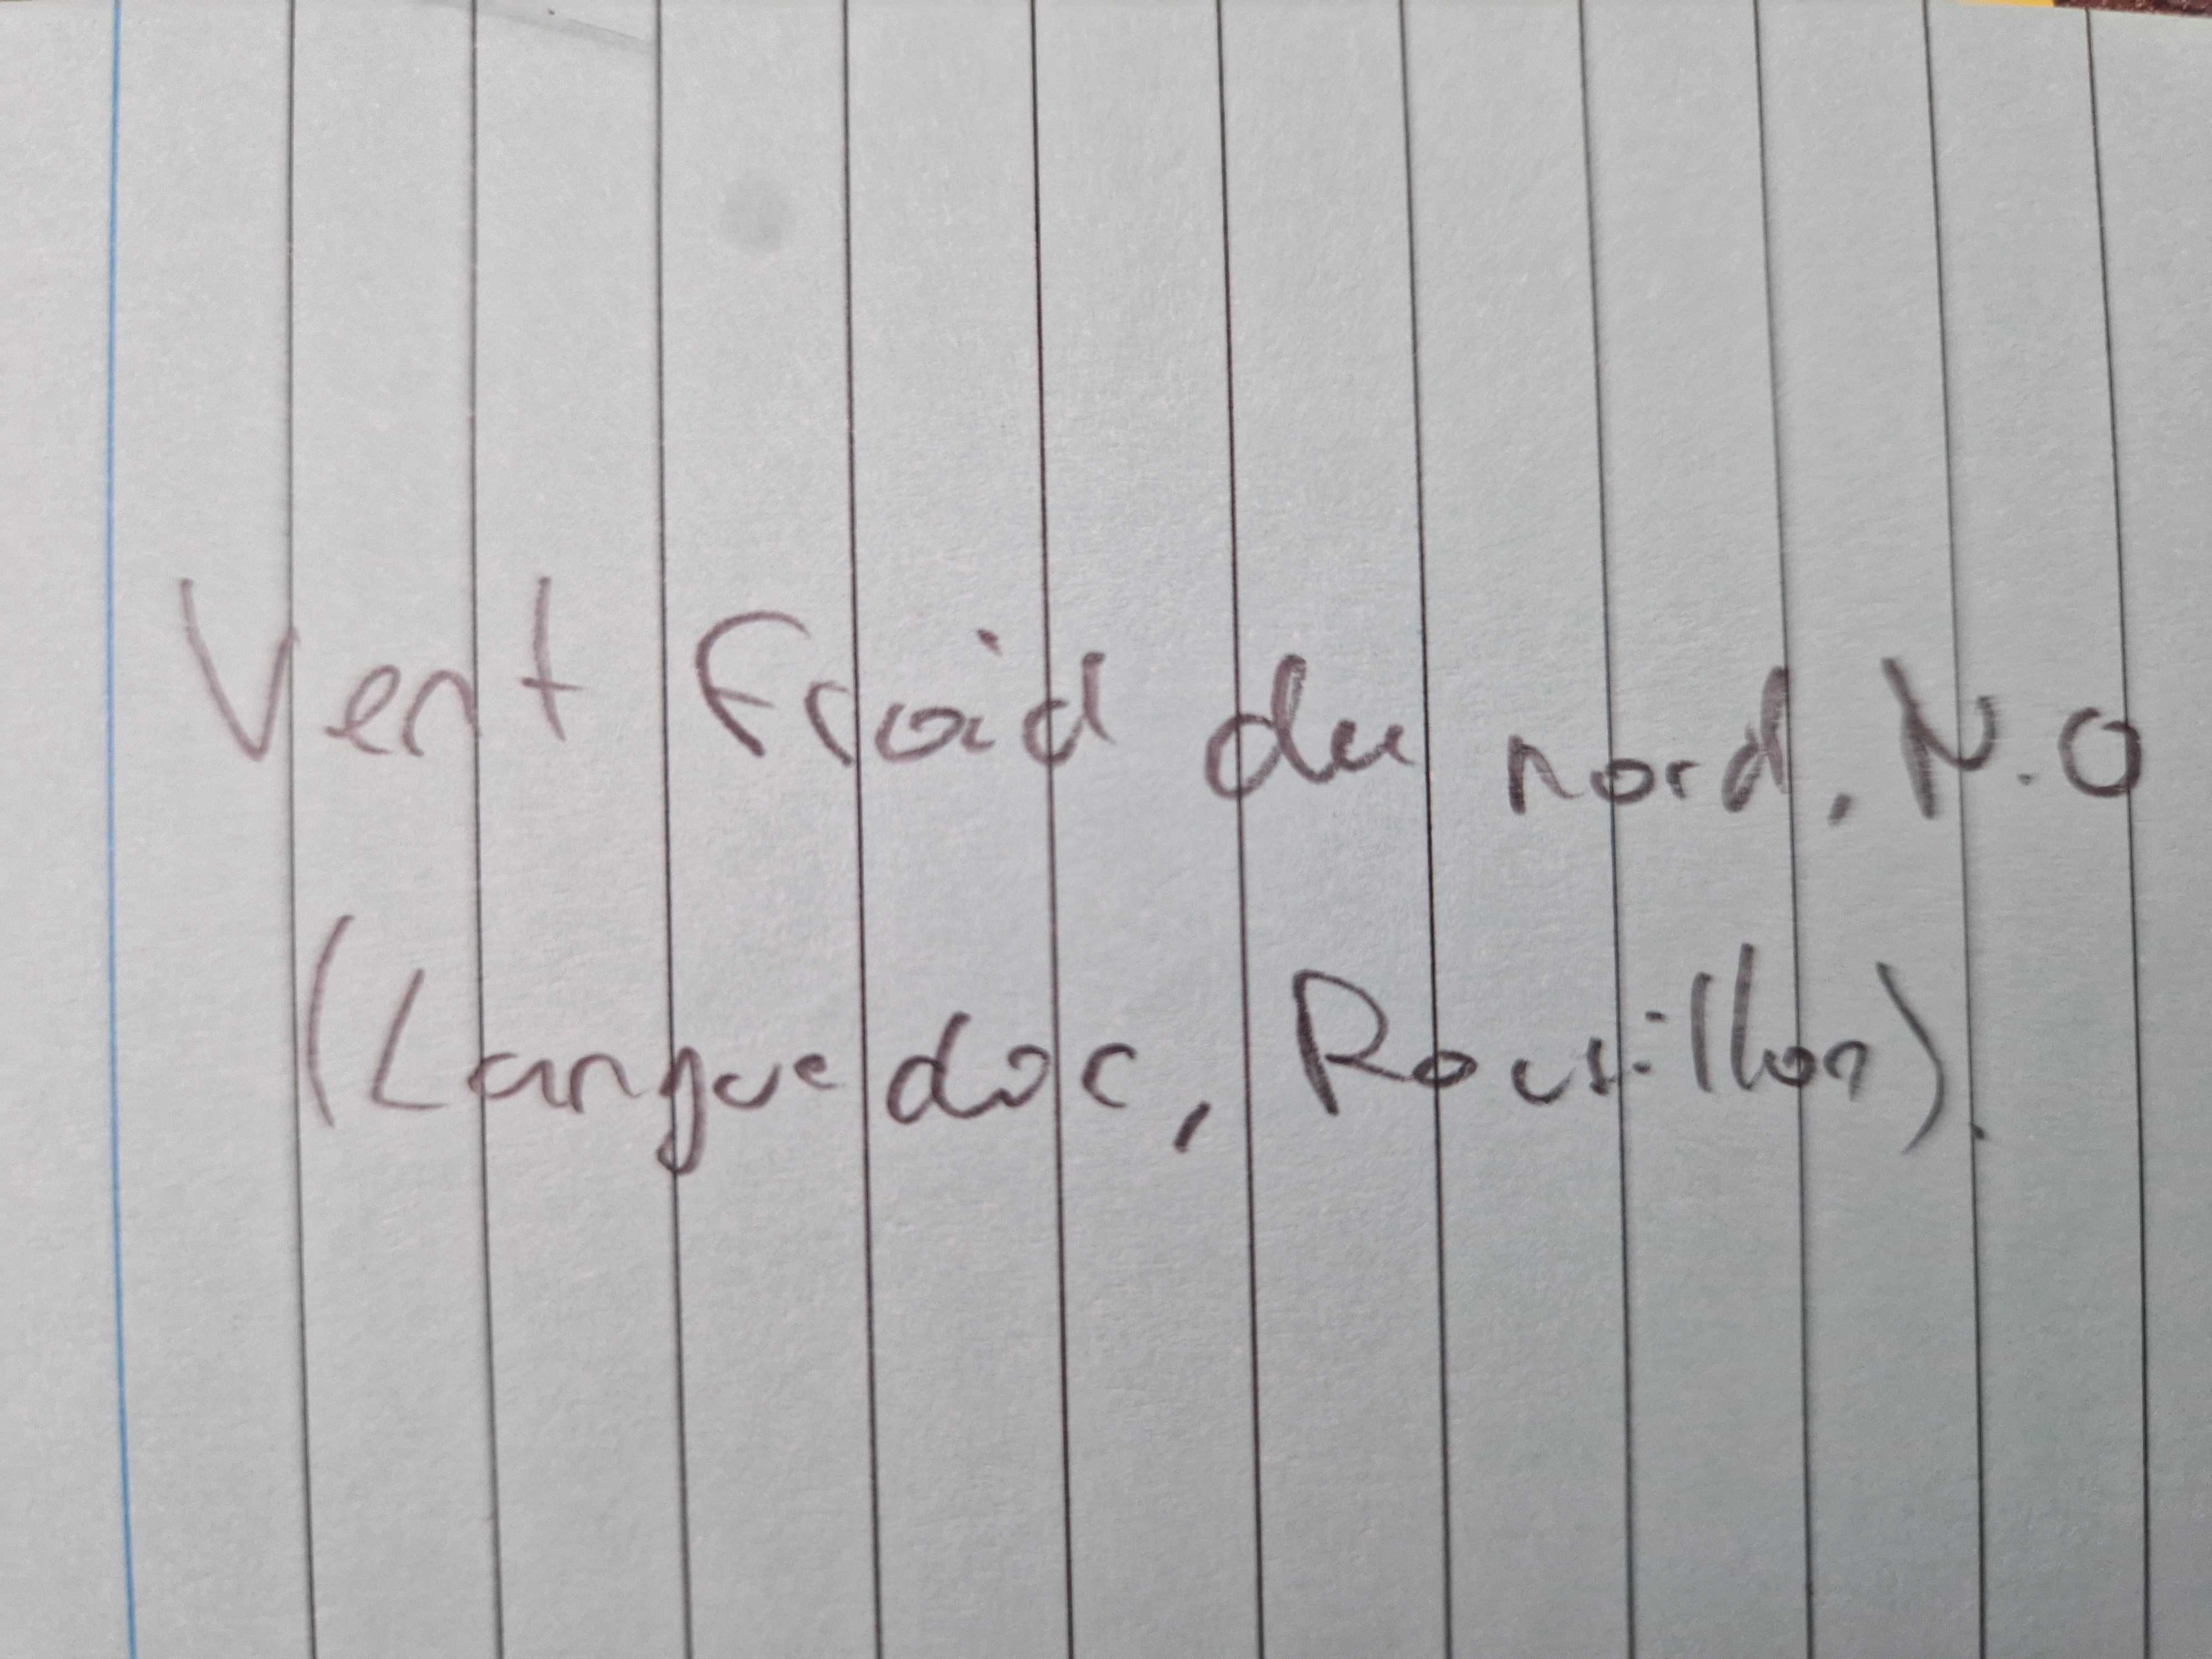 Vent froid du nord, N.O
(Languedoc, Rousillon).